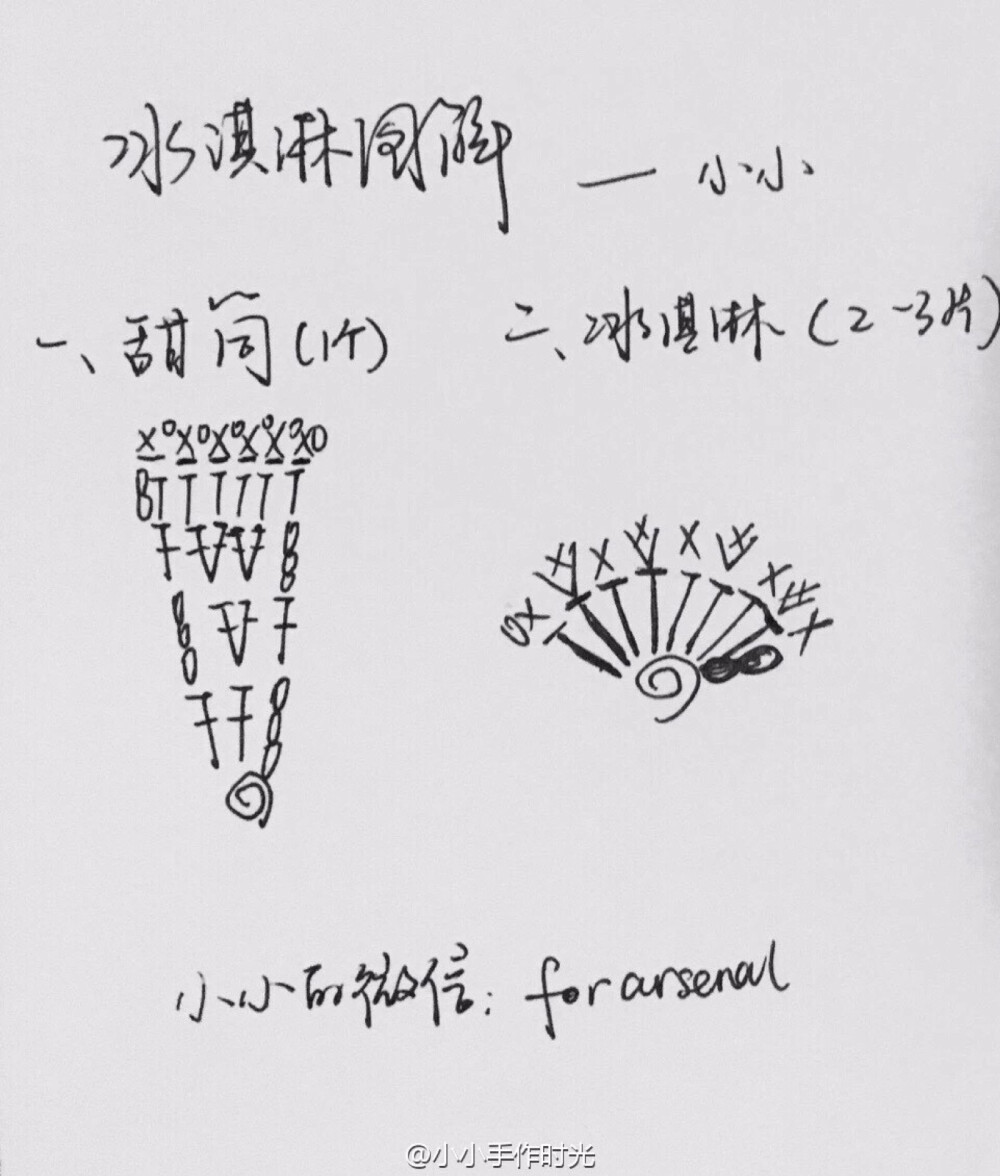 冰淇淋图解 — 小小
一、甜筒(1个)
二、冰淇淋(2-3片)
小小的微信: for arsenal
@小小手作时光